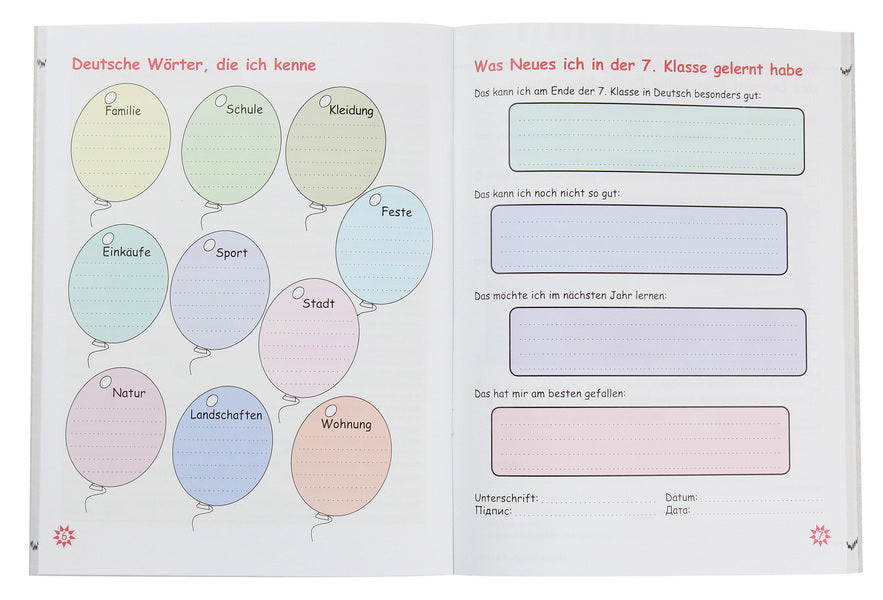 Deutsche Wörter, die ich kenne
Familie
Schule
Kleidung
Feste
Einkäufe
Sport
Stadt
Natur
Landschaften
Wohnung
6
Was Neues ich in der 7. Klasse gelernt habe
Das kann ich am Ende der 7. Klasse in Deutsch besonders gut:
Das kann ich noch nicht so gut:
Das möchte ich im nächsten Jahr lernen:
Das hat mir am besten gefallen:
Unterschrift: Datum:
Підпис: Дата:
7